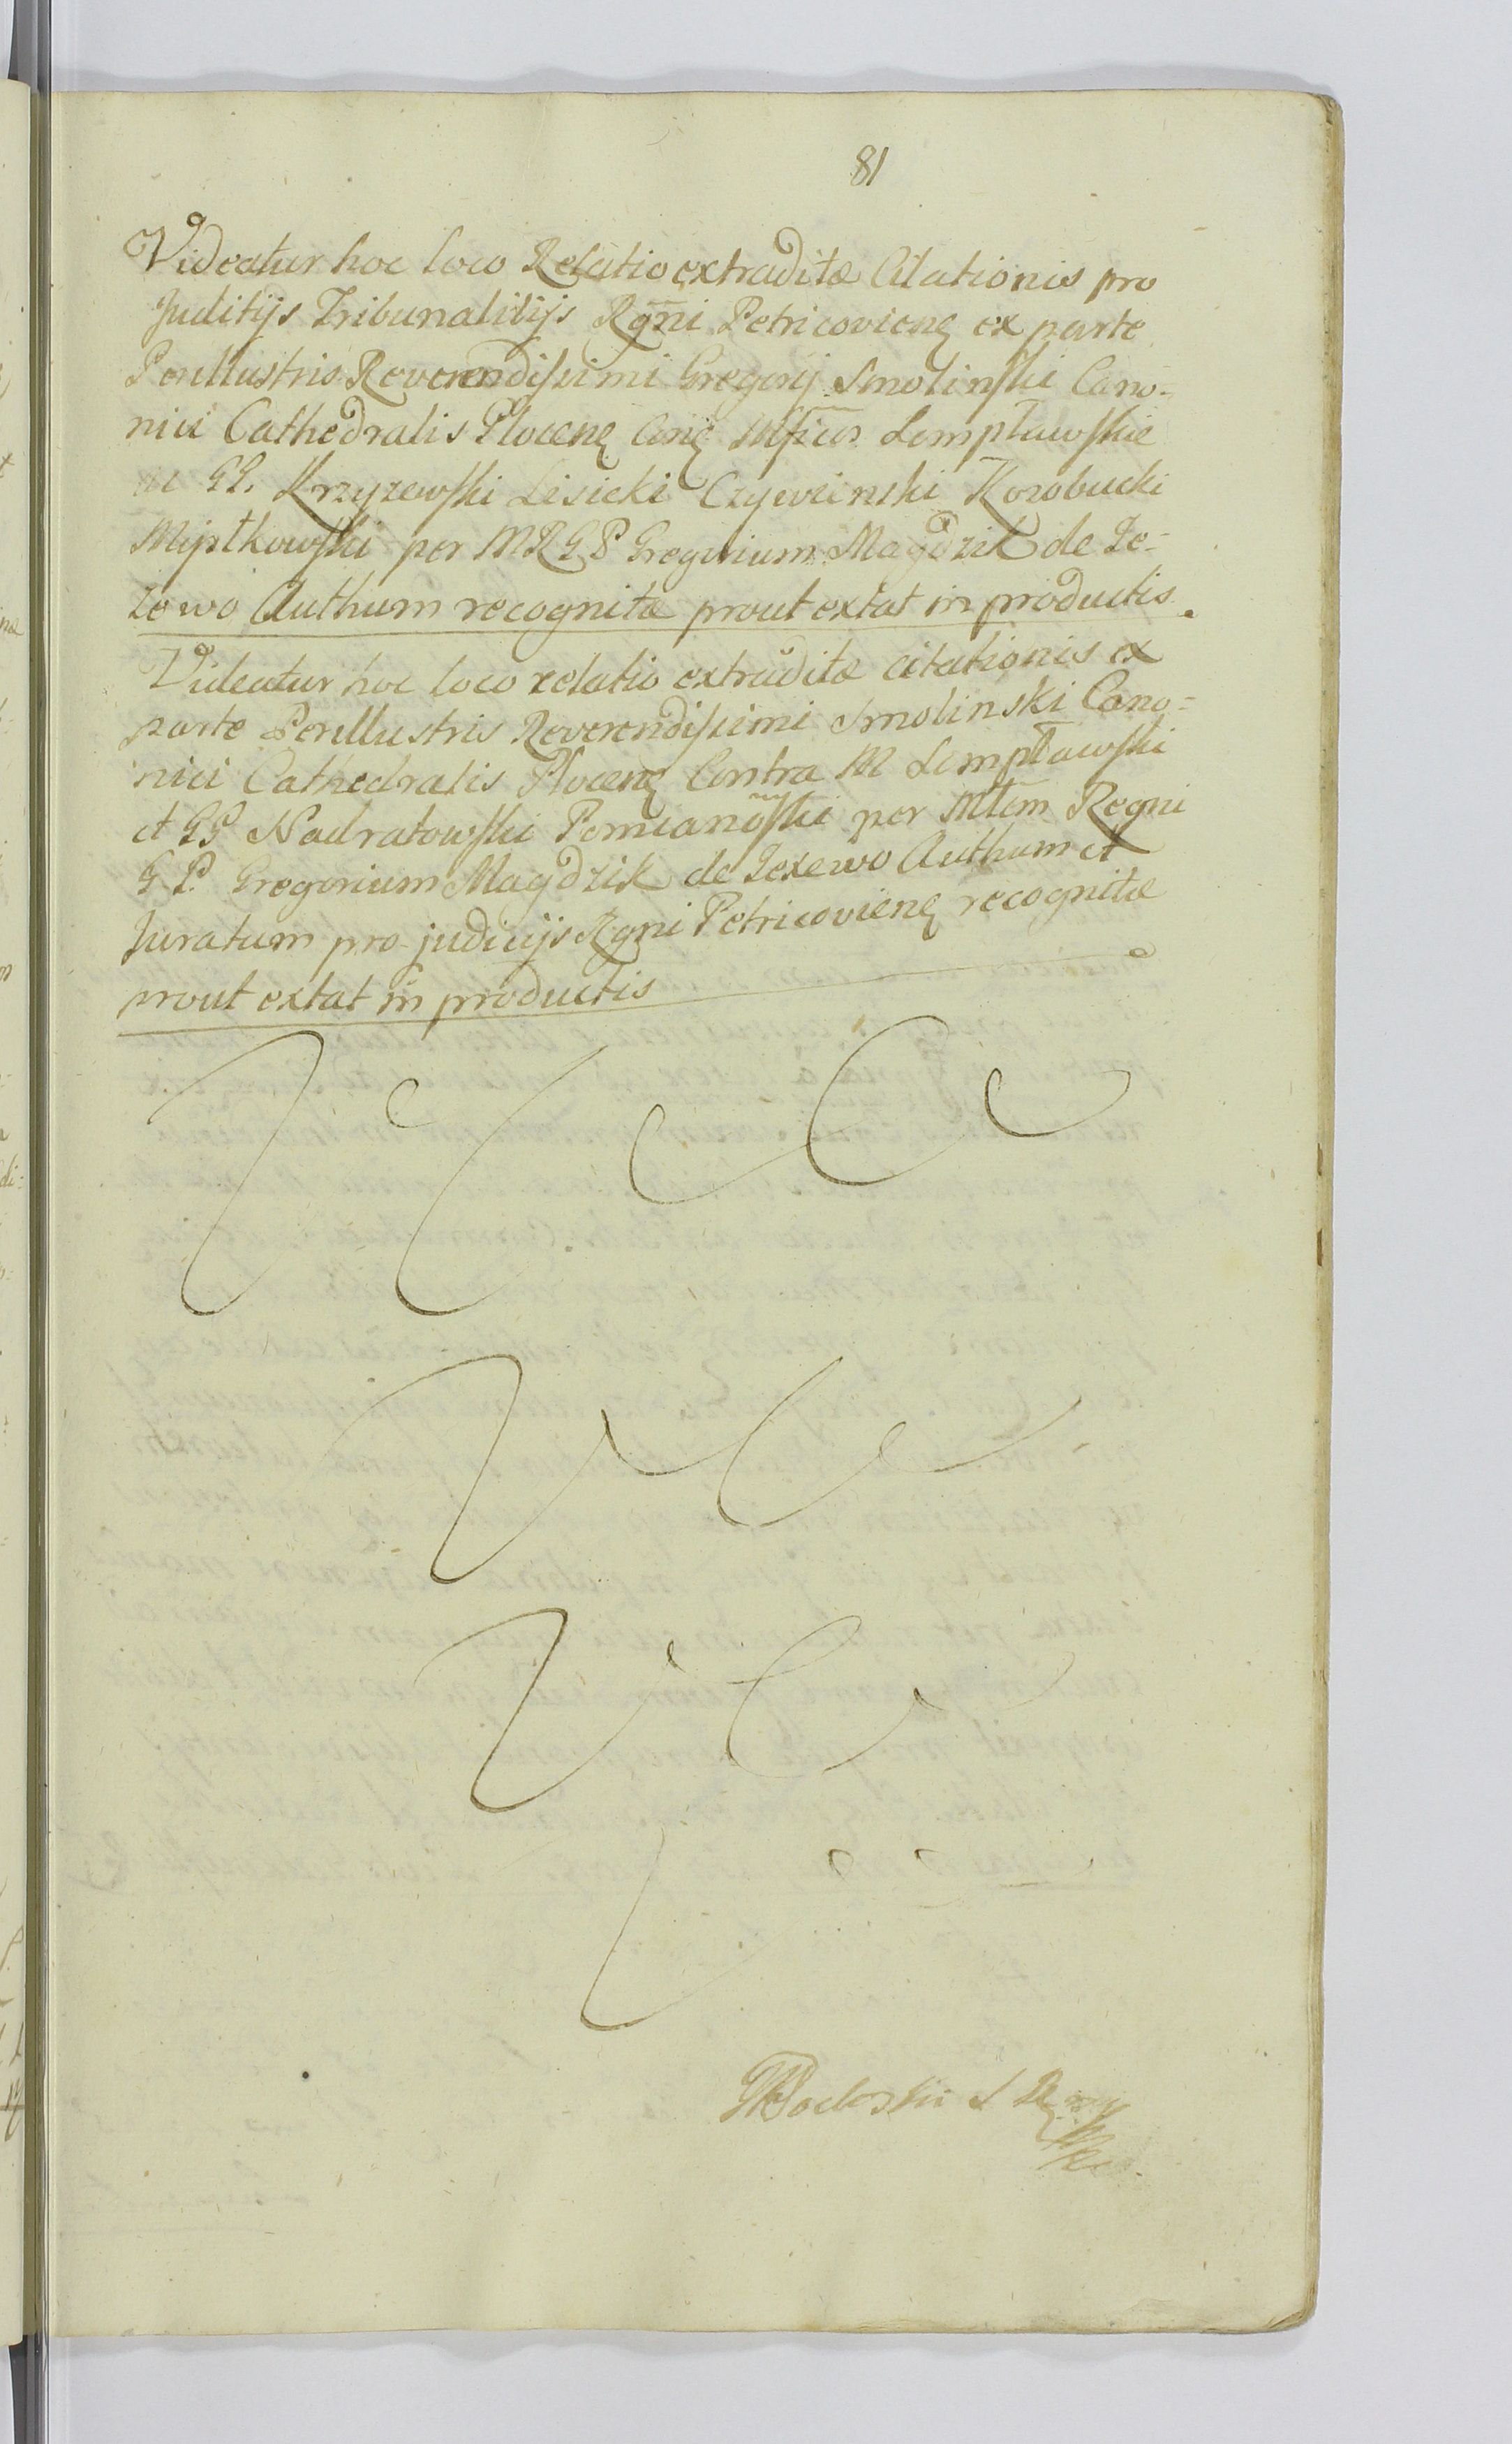 81
Videatur hoc loco Relatio extraditæ Citationis pro
Juditijs Tribunalitijs Rg̃ni Petricovienę ex parte
Perillustris Reverendissimi Gregorij Smolinski Cano-
nici Cathedralis Plocenę Lempławskie
GG. Krzyzewski Lisicki Czyewinski Korobucki
per MRGP Gregorium Magdzik de Je-
zowo Authum recognitæ prout extat in productis.
Videatur hoc loco relatio extraditæ citationis ex
parte Perillustris Reverendissimi Smolinski Cano-
nici Cathedralis Plocenę Contra M Lempławski
et GG Nadratowski Pomianoski per Mtem Regni
G P. Gregorium Magdzik de Jexewo Authum et
Juratum pro judicijs Rgni Petricovienę recognitæ
prout extat in productis